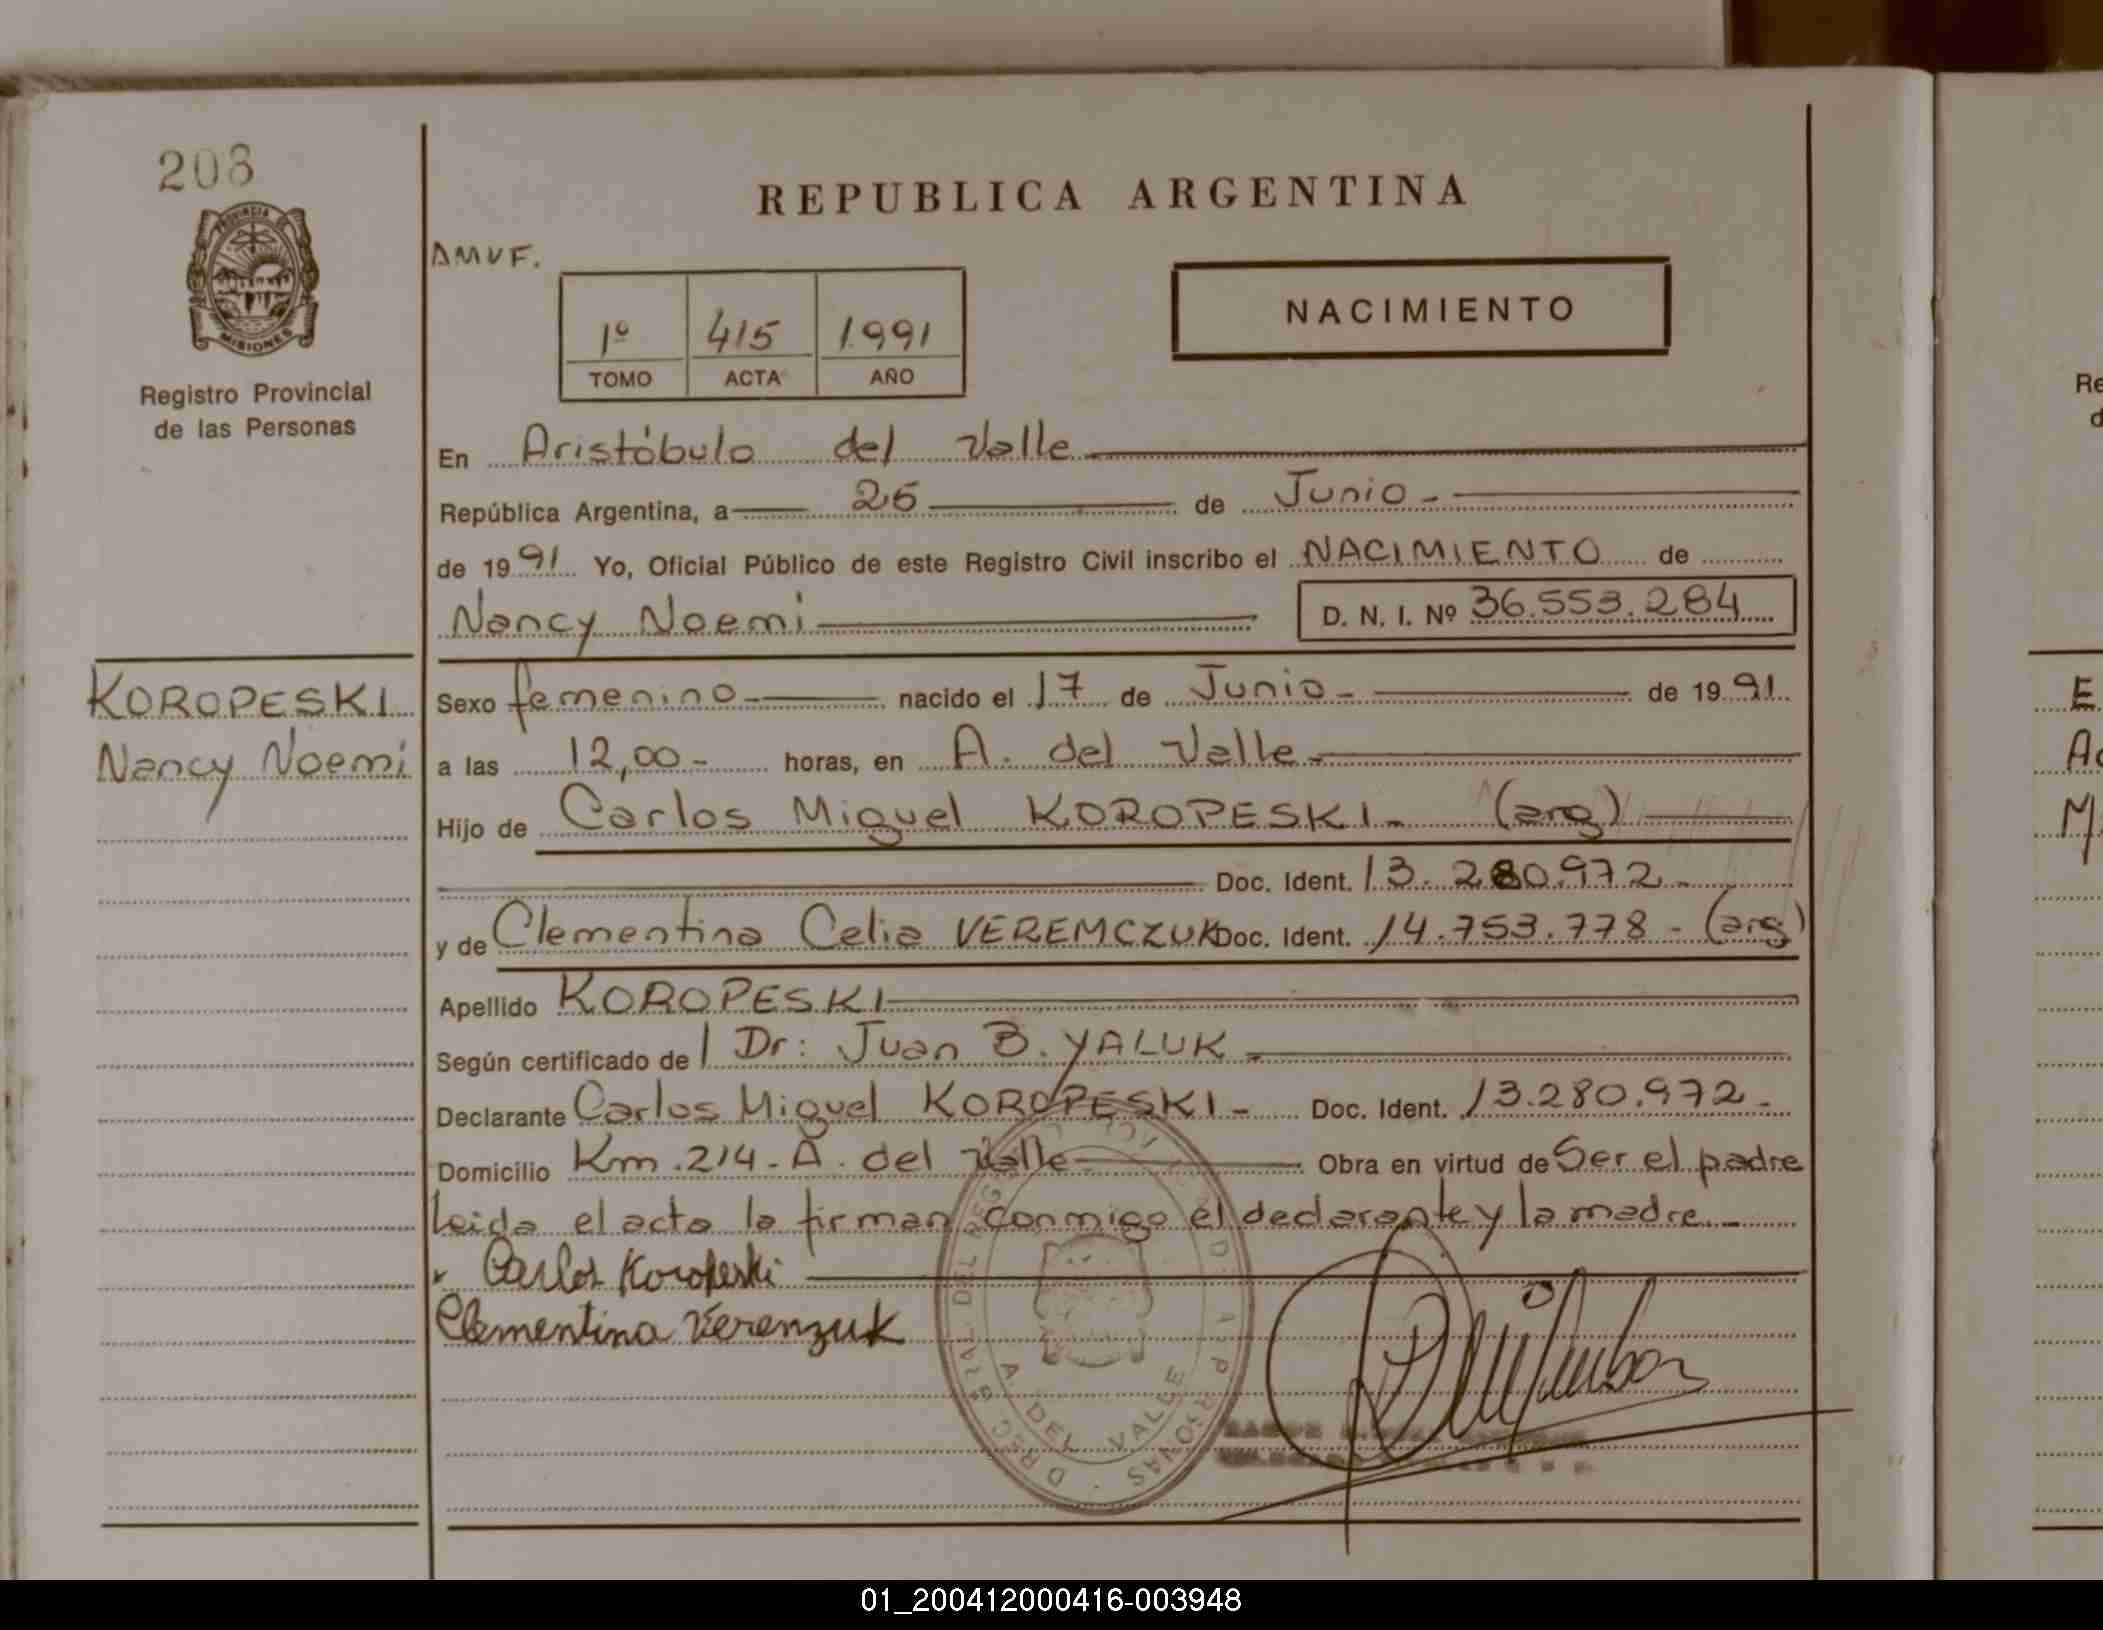 208
PROVINCIA DE
MISIONES
Registro Provincial
de las Personas
KOROPESKI
Nancy Noemi
REPUBLICA ARGENTINA
AMVF.
1º 415 1991
TOMO ACTA AÑO
NACIMIENTO
En Aristóbulo del Valle
República Argentina, a 26 de Junio -
de 1991 Yo, Oficial Público de este Registro Civil inscribo el NACIMIENTO de
Nancy Noemi D. N. I. Nº 36.553.284
Sexo femenino - nacido el 17 de Junio - de 1991
a las 12,00 - horas, en A. del Valle -
Hijo de Carlos Miguel KOROPESKI - (arg)
Doc. Ident. 13.280.972 -
y de Clementina Celia VEREMCZUK Doc. Ident. 14.753.778 - (arg)
Apellido KOROPESKI
Según certificado de l Dr: Juan B. YALUK -
Declarante Carlos Miguel KOROPESKI - Doc. Ident. 13.280.972 -
Domicilio Km. 214 - A. del Valle Obra en virtud de Ser el padre
Leida el acta la firman conmigo el declarante y la madre -
Carlos Koropeski
Clementina Verenzuk
A. DEL VALLE
Re
E
01_200412000416-003948